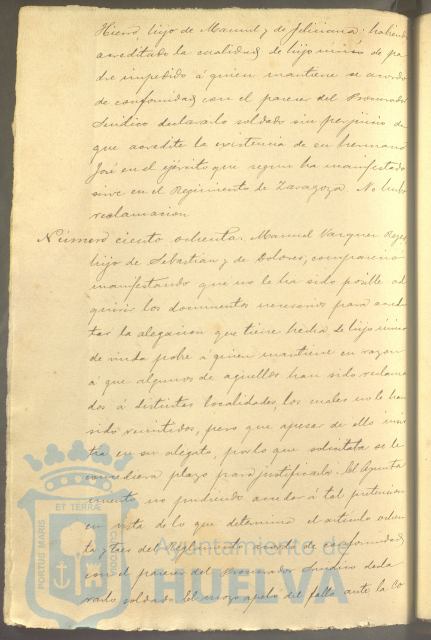 Hierro, hijo de Manuel y de Feliciana: habiendo
acreditado la cualidad, de hijo único de pa-
dre impedido á quien mantiene se acordó
de conformidad con el parecer del Procurador
Síndico declararlo soldado sin perjuicio de
que acredite la existencia de su hermano
José en el ejército que segun ha manifestado
sirve en el Regimiento de Zaragoza. No hubo
reclamacion.
Número ciento ochenta. Manuel Vazquez Reyes,
hijo de Sebastian y de Dolores; compareció
manifestando que no le ha sido posible ad
quirir los documentos necesarios para acredi
tar la alegacion que tiene hecha de hijo único
de viuda pobre á quien mantiene en razon
á que algunos de aquellos han sido reclama
dos á distintas localidades, los cuales no le han
sido remitidos, pero que apesar de ello insis
tía en su alegato, por lo que solicitaba se le
concediera plazo para justificarlo. El Ayunta
miento no pudiendo acceder á tal pretension
en vista de lo que determina el artículo ochen
ta y tres del Reglamento acordó de conformidad
con el parecer del Procurador Síndico decla
rarlo soldado. El mozo apeló del fallo ante la Co
PORTUS MARIS ET TERRÆ CUSTODIA
Ayuntamiento de
HUELVA